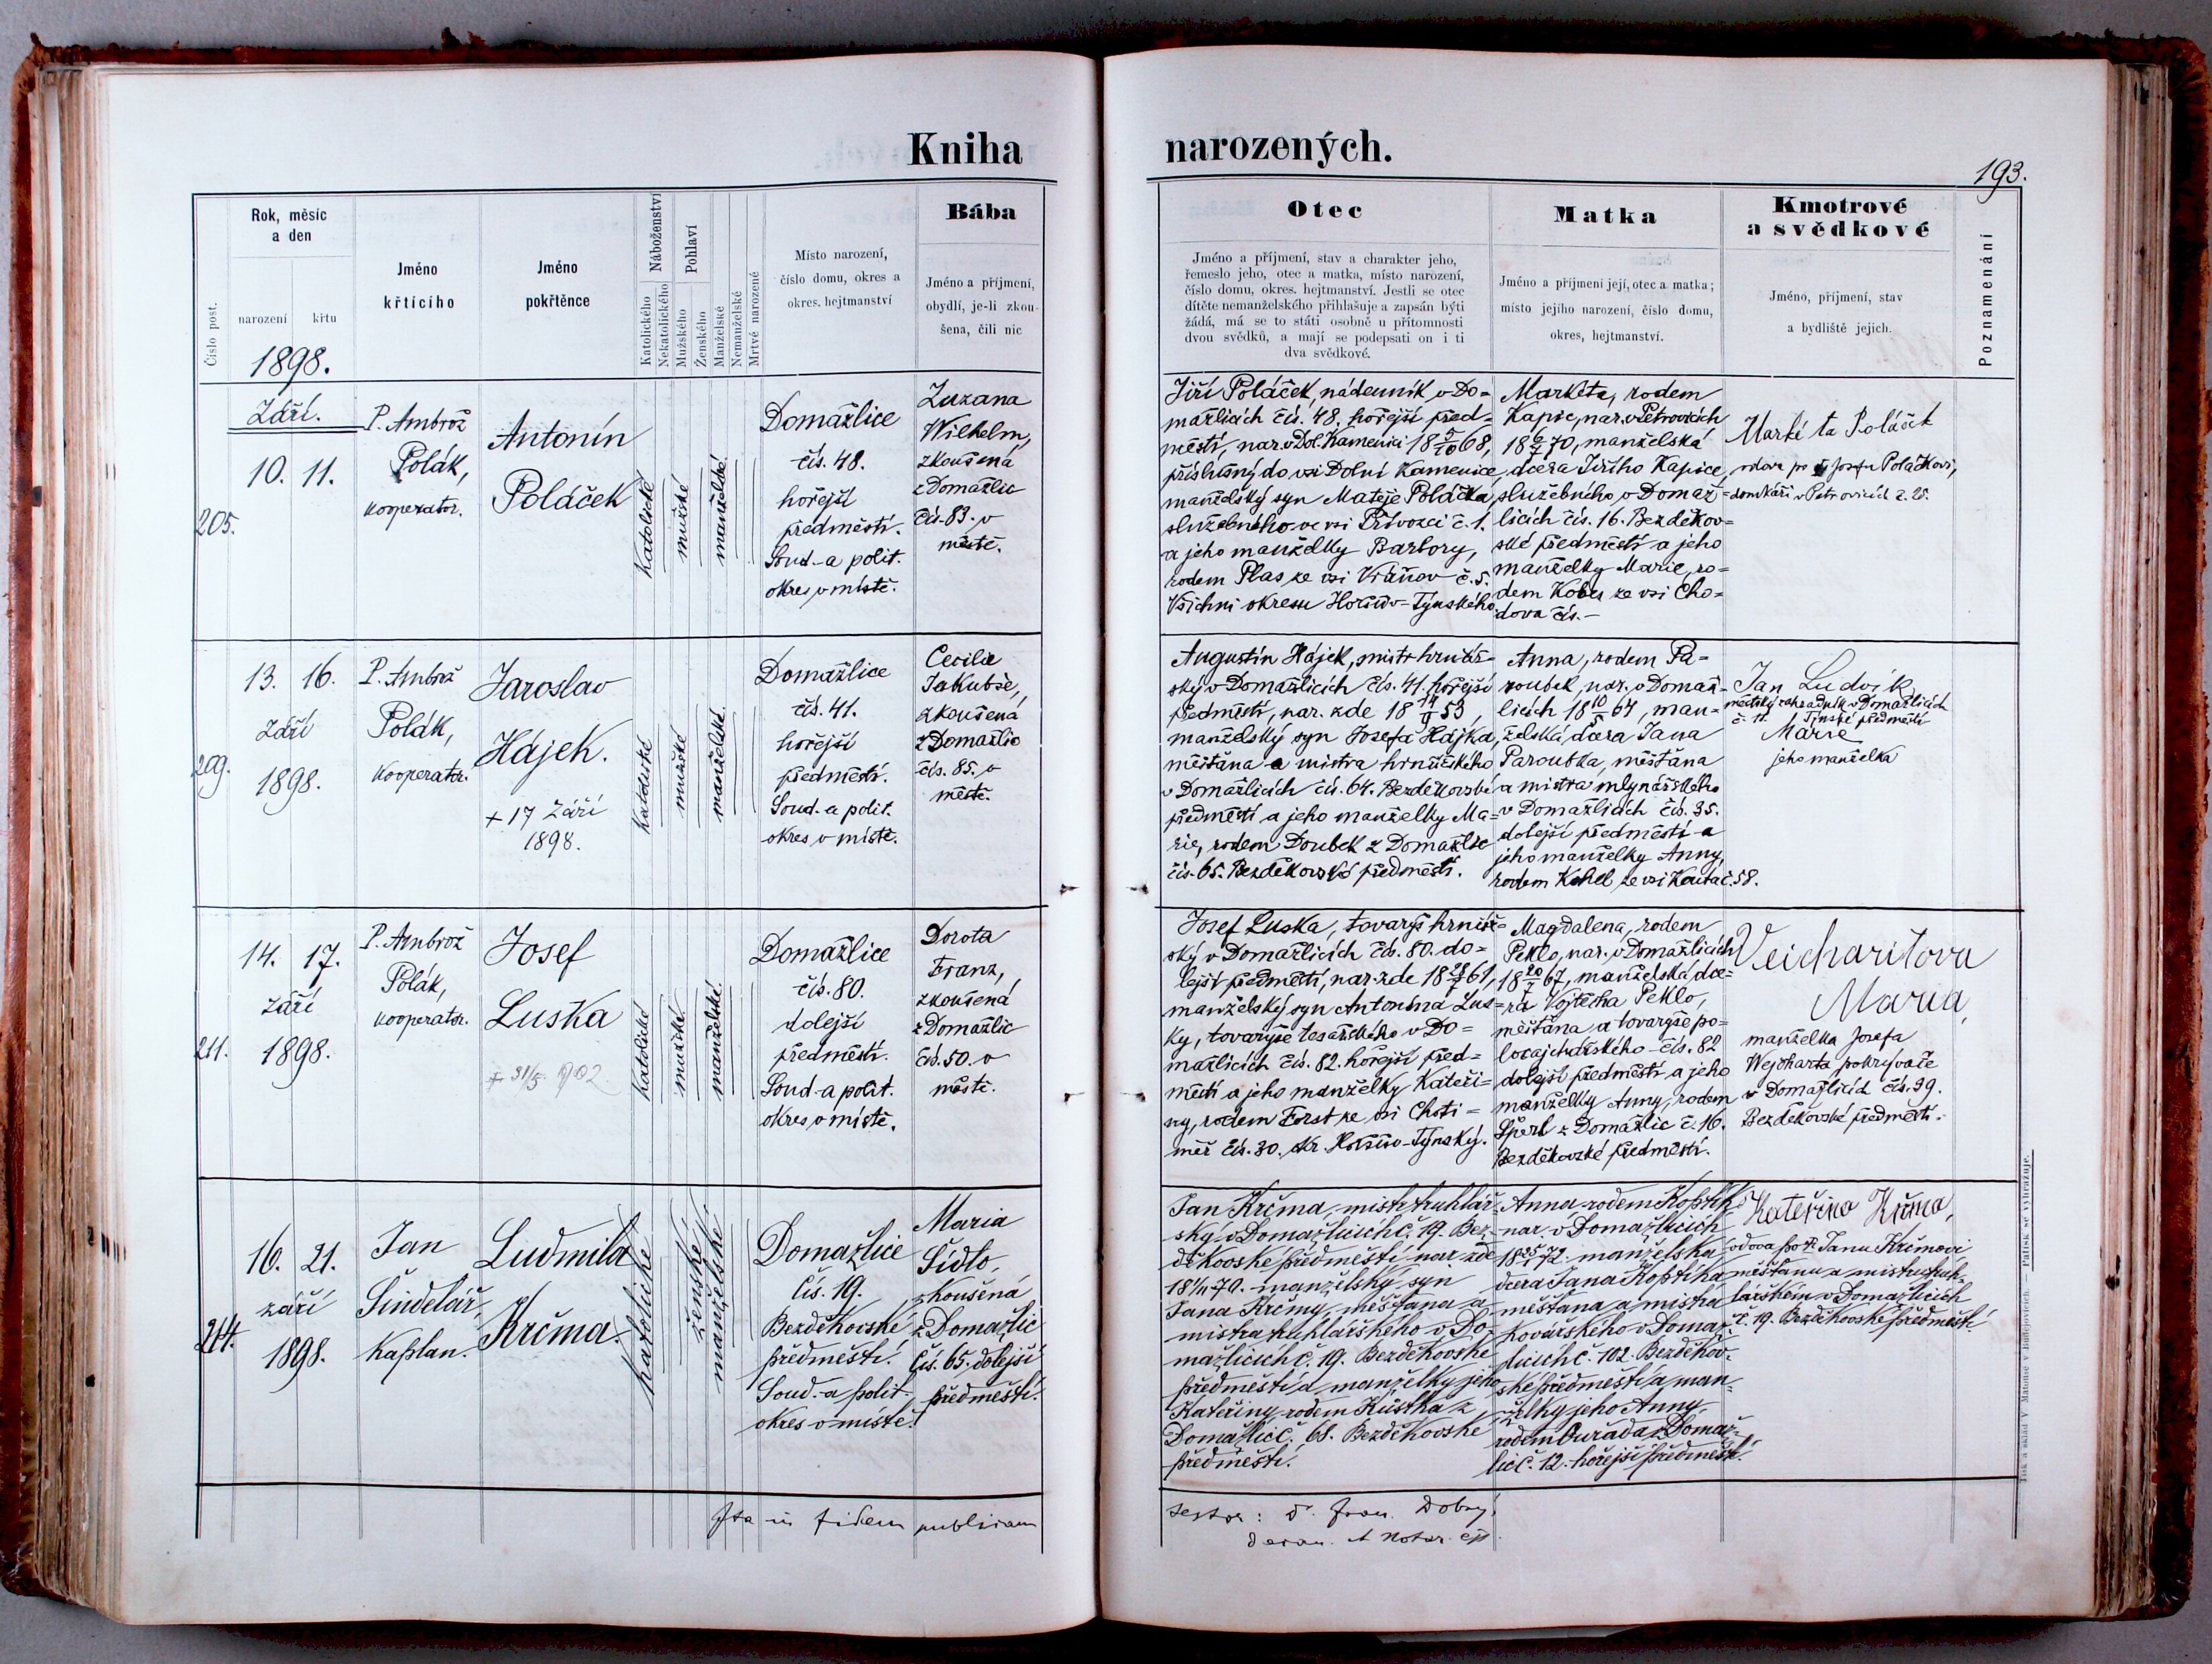 Kniha
narozených.
193.
Číslo post.
Rok, měsíc
a den
narození
křtu
1898.
Jméno
křtícího
Jméno
pokřtěnce
Náboženství
Katolického
Nekatolického
Pohlaví
Mužského
Ženského
Manželské
Nemanželské
Mrtvě narozené
Místo narození,
číslo domu, okres a
okres. hejtmanství
Bába
Jméno a příjmení,
obydlí, je-li zkou-
šena, čili nic
Otec
Jméno a příjmení, stav a charakter jeho,
řemeslo jeho, otec a matka, místo narození,
číslo domu, okres. hejtmanství. Jestli se otec
dítěte nemanželského přihlašuje a zapsán býti
žádá, má se to státi osobně u přítomnosti
dvou svědků, a mají se podepsati on i ti
dva svědkové.
Matka
Jméno a příjmení její, otec a matka;
místo jejího narození, číslo domu,
okres, hejtmanství.
Kmotrové
a svědkové
Jméno, příjmení, stav
a bydliště jejich.
Poznamenání
205.
Září.
10. 11.
P. Ambrož
Polák,
kooperator.
Antonín
Poláček
katolické
mužské
manželské
Domažlice
čís. 48.
hořejší
předměstí.
Soud- a polit.
okres v místě.
Zuzana
Wilhelm,
zkoušená
z Domažlic
čís. 83. v
městě.
Jiří Poláček, nádenník v Do-
mažlicích čís. 48. hořejší před-
městí, nar. v Dol. Kamenici 18 5/10 68,
příslušný do vsi Dolní Kamenice,
manželský syn Matěje Poláčka,
služebného ve vsi Přívozci č. 1.
a jeho manželky Barbory,
rodem Plas ze vsi Vráňov č. 5.
Všichni okresu Horšův-Týnského
Markéta, rodem
Kapic, nar. v Petrovicích
70, manželská
dcera Jiřího Kapice,
služebného v Domaž-
licích čís. 16. Bezděkov-
ské předměstí a jeho
manželky Marie, ro-
dem Kobes ze vsi Cho-
dova čís. –
Markéta Poláček
vdova po Josefu Poláčkovi,
domkáři v Petrovicích č. 25.
209.
13. 16.
září
1898.
P. Ambrož
Polák,
kooperator.
Jaroslav
Hájek.
+ 17 září
1898.
katolické
mužské
manželské
Domažlice
čís. 41.
hořejší
předměstí.
Soud- a polit.
okres v místě.
Cecilie
Jakubše,
zkoušená
z Domažlic
čís. 85. v
městě.
Augustin Hájek, mistr hrnčíř-
ský v Domažlicích čís. 41. hořejší
předměstí, nar. zde 53,
manželský syn Josefa Hájka,
měšťana a mistra hrnčířského
v Domažlicích čís. 64. Bezděkovské
předměstí a jeho manželky Ma-
rie, rodem Doubek z Domažlic
čís. 65. Bezděkovské předměstí.
Anna, rodem Pa-
roubek, nar. v Domaž-
licích 18 10/5 64, man-
želská dcera Jana
Paroubka, měšťana
a mistra mlynářského
v Domažlicích čís. 35.
dolejší předměstí a
jeho manželky Anny,
rodem ze vsi Kouta č. 58.
Jan Ludvík
městský zahradník v Domažlicích
č. 11. Týnské předměstí
Marie
jeho manželka
211.
14. 17.
září
1898.
P. Ambrož
Polák,
kooperator.
Josef
Luska
+ 31/5. 902.
katolické
mužské
manželské
Domažlice
čís. 80.
dolejší
předměstí.
Soud- a polit.
okres v místě.
Dorota
Franz,
zkoušená
z Domažlic
čís. 50. v
městě.
Josef Luska, tovaryš hrnčíř-
ský v Domažlicích čís. 80. do-
lejší předměstí, nar. zde 61,
manželský syn Antonína Lus-
ky, tovaryše tesařského v Do-
mažlicích čís. 82. hořejší před-
městí a jeho manželky Kateři-
ny, rodem Forst ze vsi Choti-
měř čís. 30. okr. Horšův-Týnský.
Magdalena, rodem
Peklo, nar. v Domažlicích
67, manželská dce-
ra Vojtěcha Peklo,
měšťana a tovaryše po-
čís. 82
dolejší předměstí a jeho
manželky Anny, rodem
Šperl z Domažlic č. 16.
Bezděkovské předměstí.
Veichartova
Maria,
manželka Josefa
Wejcharta pokrývače
v Domažlicích čís. 39.
Bezděkovské předměstí.
214.
16. 21.
září
1898.
Jan
Šindelář,
kaplan.
Ludmila
Krčma.
katolické
ženské
manželské
Domažlice
čís. 19.
Bezděkovské
předměstí.
Soud- a polit.
okres v místě.
Maria
Šídlo,
zkoušená
z Domažlic
čís. 65. dolejší
předměstí.
Jan Krčma, mistr truhlář-
ský v Domažlicích č. 19. Bez-
děkovské předměstí nar. zde
70. manželský syn
Jana Krčmy, měšťana a
mistra truhlářského v Do-
mažlicích č. 19. Bezděkovské
předměstí a manželky jeho
Kateřiny rodem z
Domažlic č. 68. Bezděkovské
předměstí.
Anna rodem Kopřík
nar. v Domažlicích
72. manželská
dcera Jana Kopříka
měšťana a mistra
kovářského v Domaž-
licích č. 102. Bezděkov-
ské předměstí a man-
želky jeho Anny
rodem Ouřada z Domaž-
lic č. 12. hořejší předměstí.
Kateřina Krčma,
vdova po Janu Krčmovi
měšťanu a mistru truh-
lářském v Domažlicích
č. 19. Bezděkovské předměstí.
Ita in fidem publicam
testor: Fran. Dobrý
děkan. et Notar. ep.
Tisk a sklad V. Matouše v Budějovicích. — Patisk se vyhrazuje.